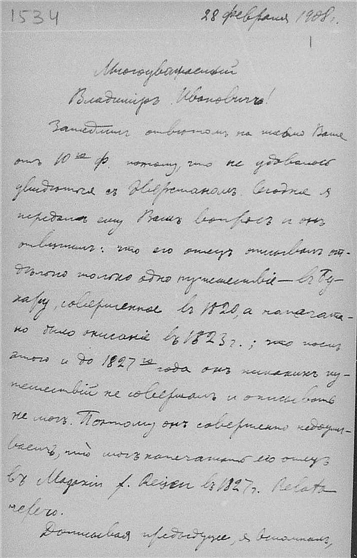 1534
28 февраля 1908 г.
1
Многоуважаемый
Владимiръ Ивановичъ!
Замедлил ответом на письмо Ваше
от 10го Ф. потому, что не удавалось
увидеться с Эверсманом. Сегодня я
передал ему Ваш вопрос и он
ответил: что его отец описывал от-
дельно только одно путешествiе — въ Бу-
хару, совершенное въ 1820, а напечата-
но было описанiе въ 1823 г.; что после
этого и до 1827го года он никаких пу-
тешествiй не совершал и описывать
не мог. Поэтому он совершенно недоуме-
вает, что мог напечатать его отец
въ Magazin f. Reisen въ 1827 г.
Дописывая предыдущее, я вспомнил,